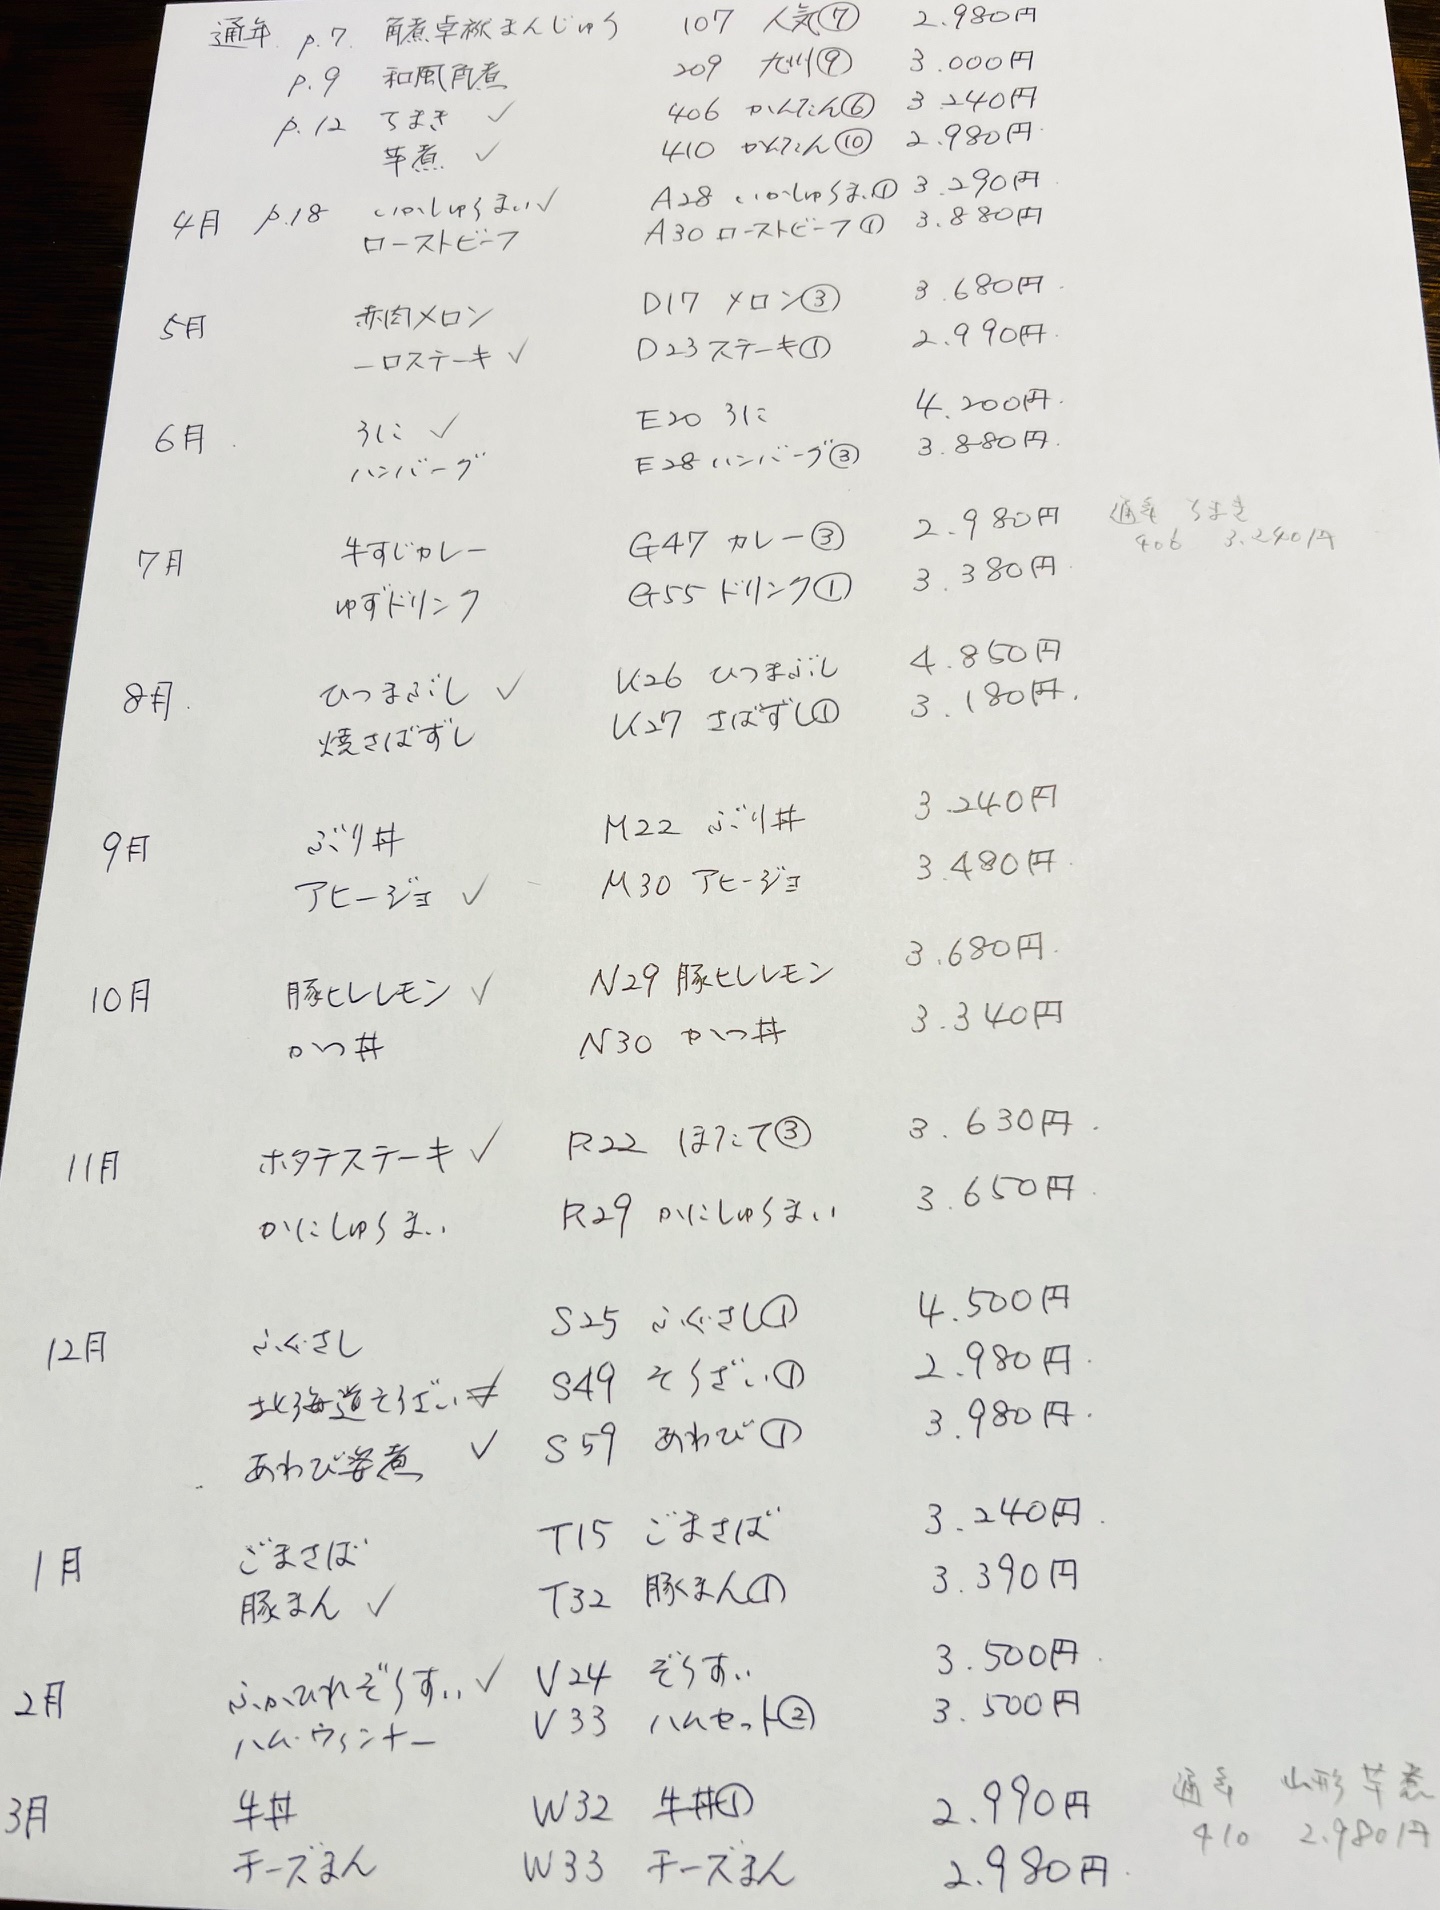 通年 p.7 角煮卓袱まんじゅう 107 人気⑦ 2.980円
p.9 和風角煮 209 九州⑨ 3.000円
p.12 ちまき ✓ 406 かんたん⑥ 3.240円
芋煮 ✓ 410 かんたん⑩ 2.980円
4月 p.18 いかしゅうまい ✓ A28 いかしゅうまい① 3.290円
ローストビーフ A30 ローストビーフ① 3.880円
5月 赤肉メロン D17 メロン③ 3.680円
一口ステーキ ✓ D23 ステーキ① 2.990円
6月 うに ✓ E20 うに 4.200円
ハンバーグ E28 ハンバーグ③ 3.880円
7月 牛すじカレー G47 カレー③ 2.980円 通年 ちまき
ゆずドリンク G55 ドリンク① 3.380円 406 3.240円
8月 ひつまぶし ✓ K26 ひつまぶし 4.850円
焼さばずし K27 さばずし① 3.180円
9月 ぶり丼 M22 ぶり丼 3.240円
アヒージョ ✓ M30 アヒージョ 3.480円
10月 豚ヒレレモン ✓ N29 豚ヒレレモン 3.680円
かつ丼 N30 かつ丼 3.340円
11月 ホタテステーキ ✓ R22 ほたて③ 3.630円
かにしゅうまい R29 かにしゅうまい 3.650円
12月 ふぐさし S25 ふぐさし① 4.500円
北海道そうざい S49 そうざい① 2.980円
あわび姿煮 ✓ S59 あわび① 3.980円
1月 ごまさば T15 ごまさば 3.240円
豚まん ✓ T32 豚まん① 3.390円
2月 ふかひれぞうすい ✓ V24 ぞうすい 3.500円
ハム・ウィンナー V33 ハムセット② 3.500円
3月 牛丼 W32 牛丼① 2.990円 通年 山形芋煮
チーズまん W33 チーズまん 2.980円 410 2.980円